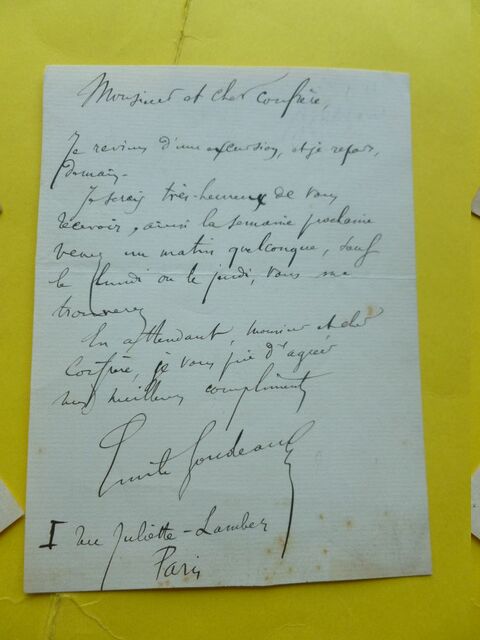 Monsieur et cher confrère,
Je reviens d'une excursion, et je repars,
demain.
Je serai très-heureux de vous
recevoir, ainsi la semaine prochaine
venez un matin quelconque, sauf
le lundi ou le jeudi, vous me
trouverez
En attendant, monsieur et cher
confrère, je vous prie d'agréer
mes meilleurs compliments
Emile Goudeau
I rue Juliette-Lamber
Paris